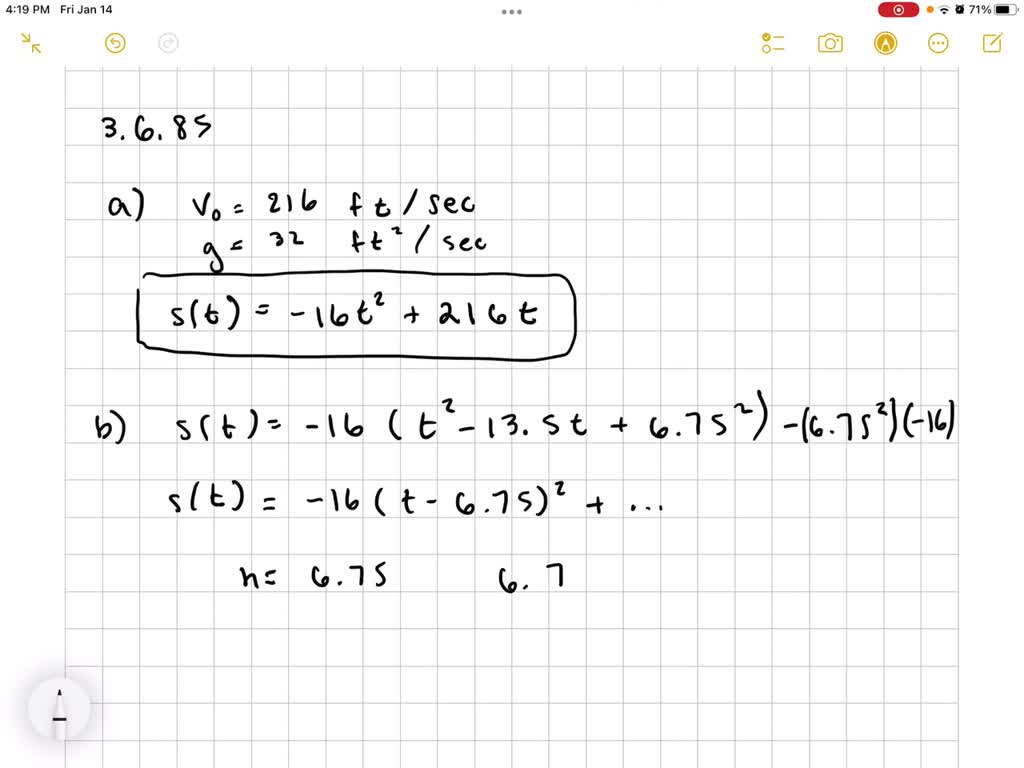 4:19 PM Fri Jan 14
71%
3.6.85
a) v₀ = 216 ft/sec
g = 32 ft²/sec
s(t) = -16t² + 216t
b) s(t) = -16(t² - 13.5t + 6.75²) - (6.75²)(-16)
s(t) = -16(t - 6.75)² + ...
h = 6.75 6.7